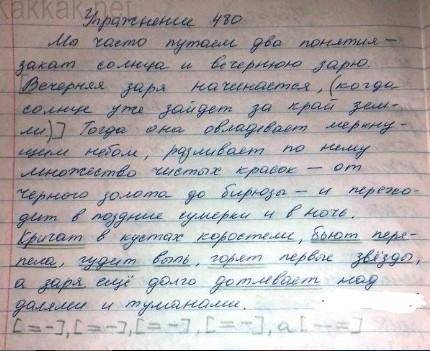 kakkak.net
Упражнение 480
Мы часто путаем два понятия –
закат солнца и вечернюю зарю.
[Вечерняя заря начинается, (когда
солнце уже зайдет за край зем-
ли)] Тогда она овладевает меркну-
щим небом, разливает по нему
множество чистых красок – от
черного золота до бирюзы – и перехо-
дит в поздние сумерки и в ночь.
Кричат в кустах коростели, бьют пере-
пела, гудит выпь, горят первые звёзды,
а заря ещё долго дотлевает над
далями и туманами.
[= -], [= -], [= -], [= -], а [- =]